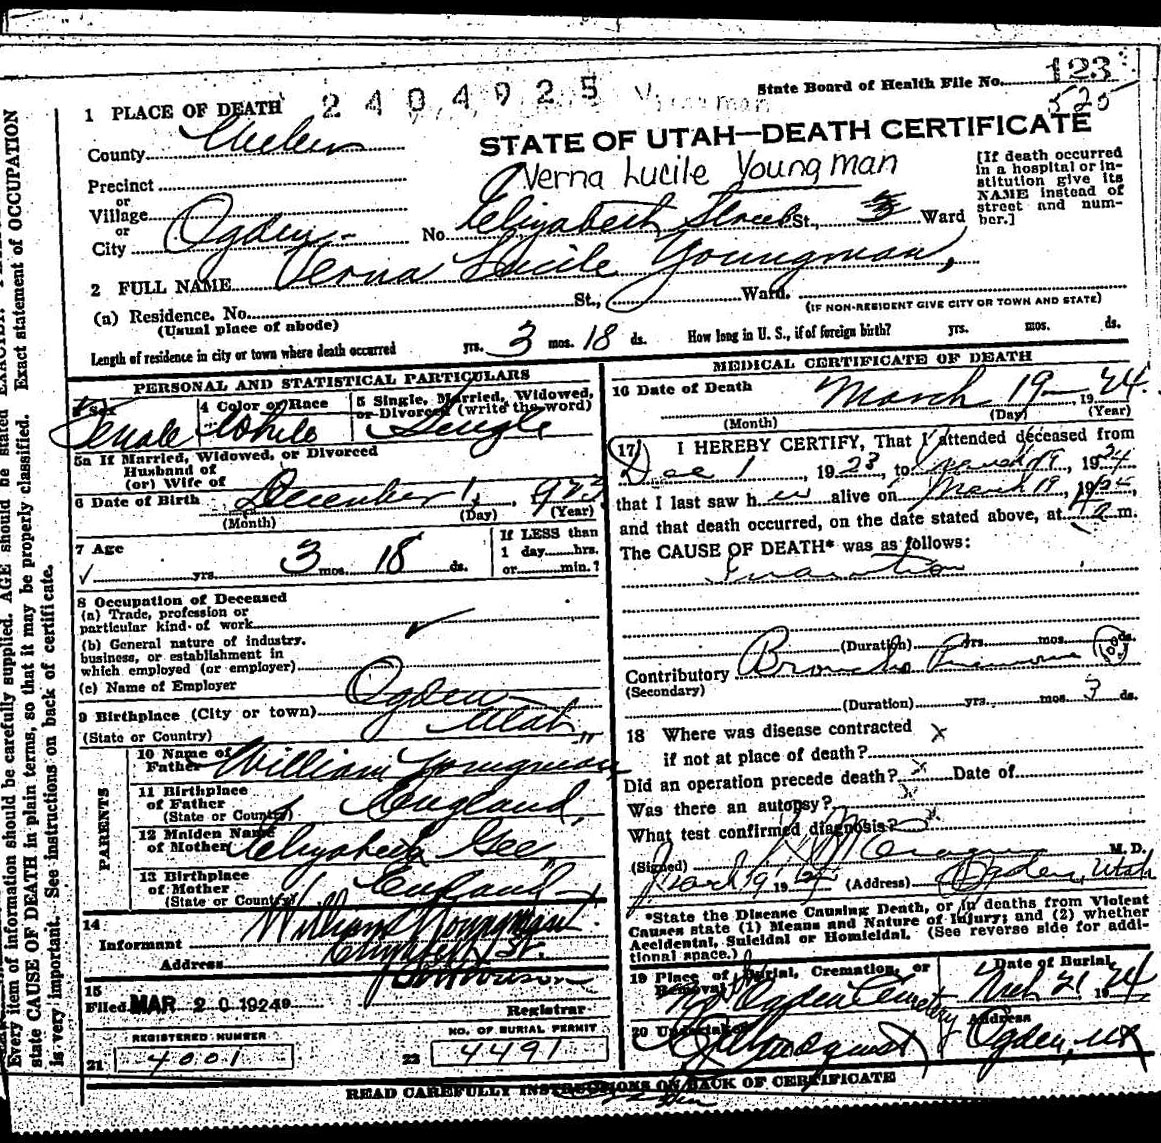 State Board of Health File No. 123
525
1 PLACE OF DEATH 2404925
STATE OF UTAH—DEATH CERTIFICATE
County Weber
Verna Lucile Youngman
[If death occurred
in a hospital or in-
stitution give its
NAME instead of
street and num-
ber.]
Precinct
or
Village
or
City Ogden No. Elizabeth Street St., 3 Ward
2 FULL NAME Verna Lucile Youngman,
(a) Residence. No. St., Ward.
(Usual place of abode) (IF NON-RESIDENT GIVE CITY OR TOWN AND STATE)
Length of residence in city or town where death occurred yrs. 3 mos. 18 ds. How long in U. S., if of foreign birth? yrs. mos. ds.
PERSONAL AND STATISTICAL PARTICULARS
3 Sex 4 Color or Race 5 Single, Married, Widowed,
or Divorced (write the word)
Female White Single
5a If Married, Widowed, or Divorced
Husband of
(or) Wife of
6 Date of Birth December 1, 1923
(Month) (Day) (Year)
7 Age If LESS than
1 day hrs.
yrs. 3 mos. 18 ds. or min.?
8 Occupation of Deceased
(a) Trade, profession or
particular kind of work
(b) General nature of industry,
business, or establishment in
which employed (or employer)
(c) Name of Employer
9 Birthplace (City or town) Ogden
(State or Country) Utah
PARENTS
10 Name of
Father William Youngman
11 Birthplace
of Father England,
(State or Country)
12 Maiden Name
of Mother Elizabeth Gee
13 Birthplace
of Mother England
(State or Country)
14
Informant William Youngman
Address Elizabeth St.
15
Filed MAR 20 1924 Registrar
REGISTERED NUMBER NO. OF BURIAL PERMIT
21 4001 22 4491
MEDICAL CERTIFICATE OF DEATH
16 Date of Death March 19 1924
(Month) (Day) (Year)
17 I HEREBY CERTIFY, That I attended deceased from
Dec 1, 1923, to March 19, 1924
that I last saw her alive on March 19, 1924,
and that death occurred, on the date stated above, at m.
The CAUSE OF DEATH* was as follows:
Inanition
(Duration) yrs. mos. ds.
Contributory Broncho Pneumonia
(Secondary)
(Duration) yrs. mos. 3 ds.
18 Where was disease contracted
if not at place of death?
Did an operation precede death? Date of
Was there an autopsy?
What test confirmed diagnosis?
(Signed) M. D.
March 19 1924 (Address) Ogden, Utah
*State the Disease Causing Death, or in deaths from Violent
Causes state (1) Means and Nature of Injury; and (2) whether
Accidental, Suicidal or Homicidal. (See reverse side for addi-
tional space.)
19 Place of Burial, Cremation, or Date of Burial
Removal Ogden Cemetery Mch 21 1924
20 Undertaker Address
Lindquist Ogden, Ut
READ CAREFULLY INSTRUCTIONS ON BACK OF CERTIFICATE
Every item of information should be carefully supplied. AGE should be stated EXACTLY.
state CAUSE OF DEATH in plain terms, so that it may be properly classified. Exact statement of OCCUPATION
is very important. See instructions on back of certificate.